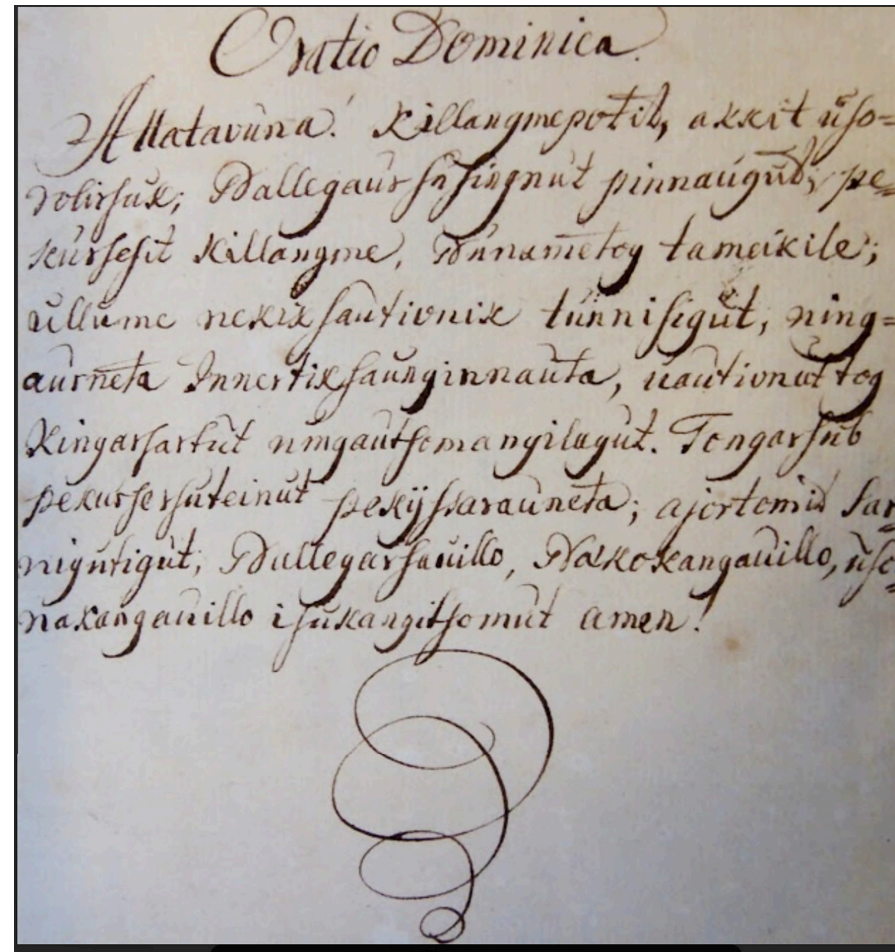 Oratio Dominica.
Attatavùna! Killangmepotit, akkit ùso=
rolirsuk; Nallegaursinsingnut pinnaùgut; pe=
kùrsesit Killangme, Nùnametog tameikile;
ùllùme nekiksautivnik tùnnisigùt, ning=
aùrneta Innertiksaùnginnaùta, uautivnut tog
Kingarsartùt ningautsomangilagùt. Tongarsùb
pekurserùteinut pekijssaraùneta; ajortomid sar
nigutigùt; Nallegarsauillo, Nakokangauillo, ùso=
nakangauillo isùkangitsomùt amen!